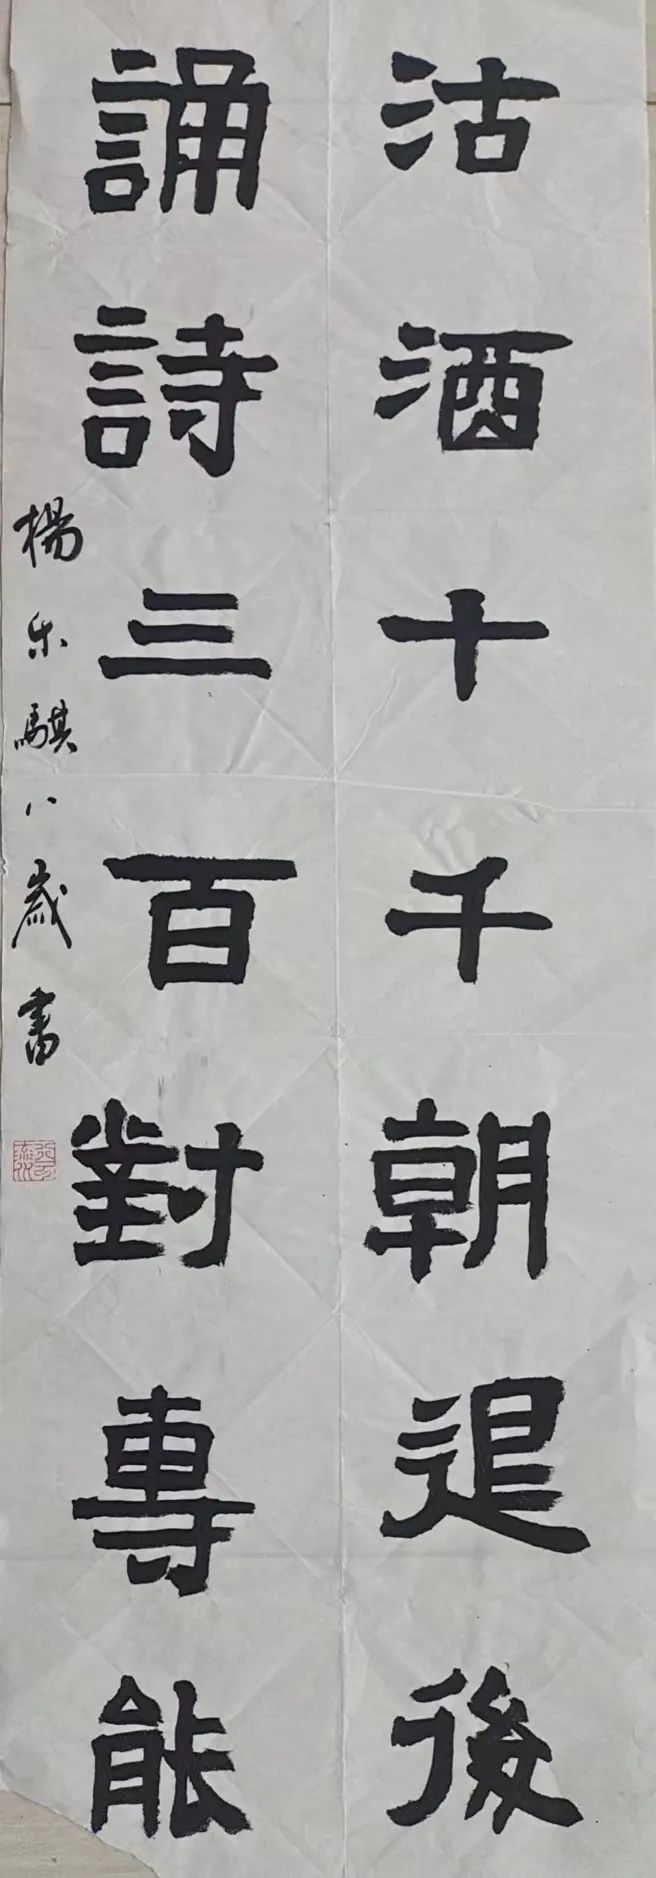 沽酒十千朝退後
誦詩三百對專能
楊樂騏八歲書